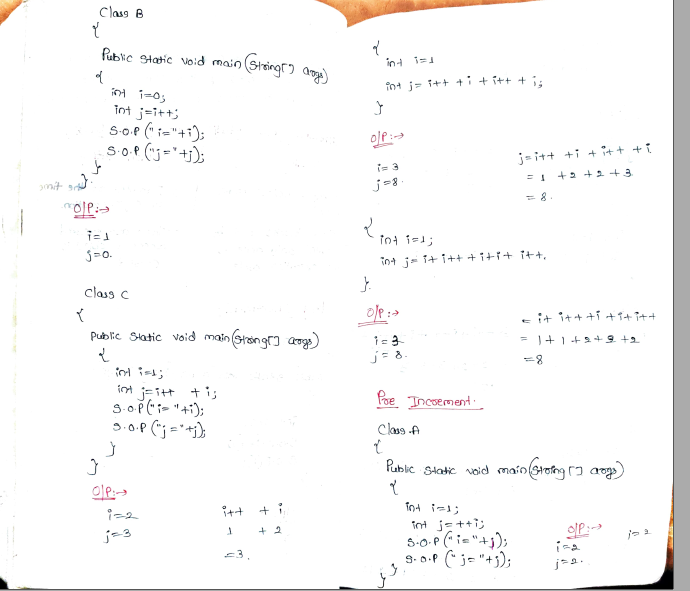 Class B
{
Public static void main(String[] args)
{
int i=0;
int j=i++;
S.O.P("i="+i);
S.O.P("j="+j);
}
}
O/P:→
i=1
j=0.
Class C
{
Public static void main(String[] args)
{
int i=1;
int j=i++ + i;
S.O.P("i="+i);
S.O.P("j="+j);
}
}
O/P:→
i=2
j=3
i++ + i
1 + 2
=3.
{
int i=1
int j= i++ + i + i++ + i;
}
O/P:→
i=3
j=8.
j=i++ +i + i++ +i
= 1 +2 +2 +3
= 8.
{
int i=1;
int j= i+ i++ +i+i+ i++.
}.
O/P:→
i=3
j= 8.
= i+ i++ +i +i+i++
= 1+1+2+2+2
=8
Pre Increment.
Class A
{
Public static void main(String[] args)
{
int i=1;
int j=++i;
S.O.P("i="+j);
S.O.P("j="+j);
}
}
O/P:→
i=2
j=2.
j=2